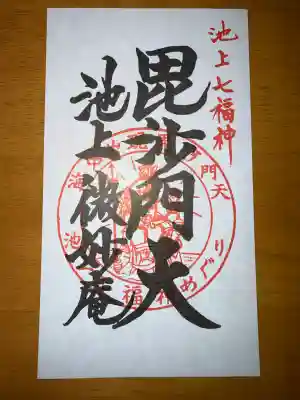 池上七福神
毘沙門天
池上微妙庵